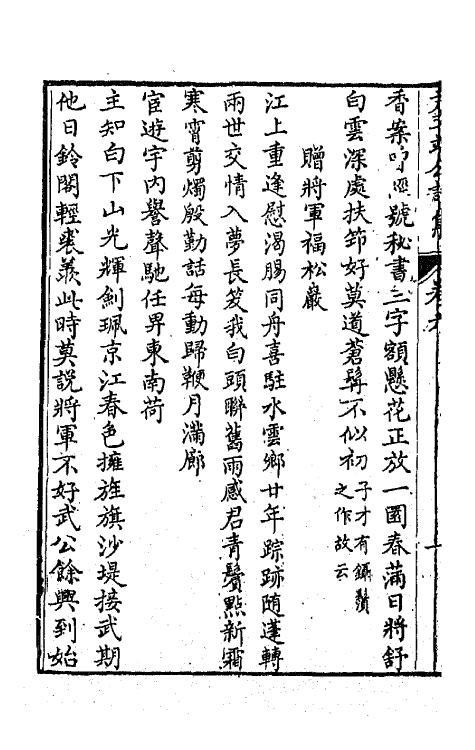 香案吟𢖍號秘書三字額懸花正放一園春滿日將舒
白雲深處扶筇好莫道蒼髯不似初子才有鑷鬚之作故云
贈將軍福松巖
江上重逢慰渴腸同舟喜駐水雲鄉廿年踪跡隨蓬轉
兩世交情入夢長笑我白頭聯舊雨感君青鬢點新霜
寒宵剪燭殷勤話每動歸鞭月滿廊
宦遊宇內譽聲馳任畀東南荷
主知白下山光輝劍珮京江春色擁旌旗沙堤接武期
他日鈴閣輕裘羨此時莫說將軍不好武公餘興到始